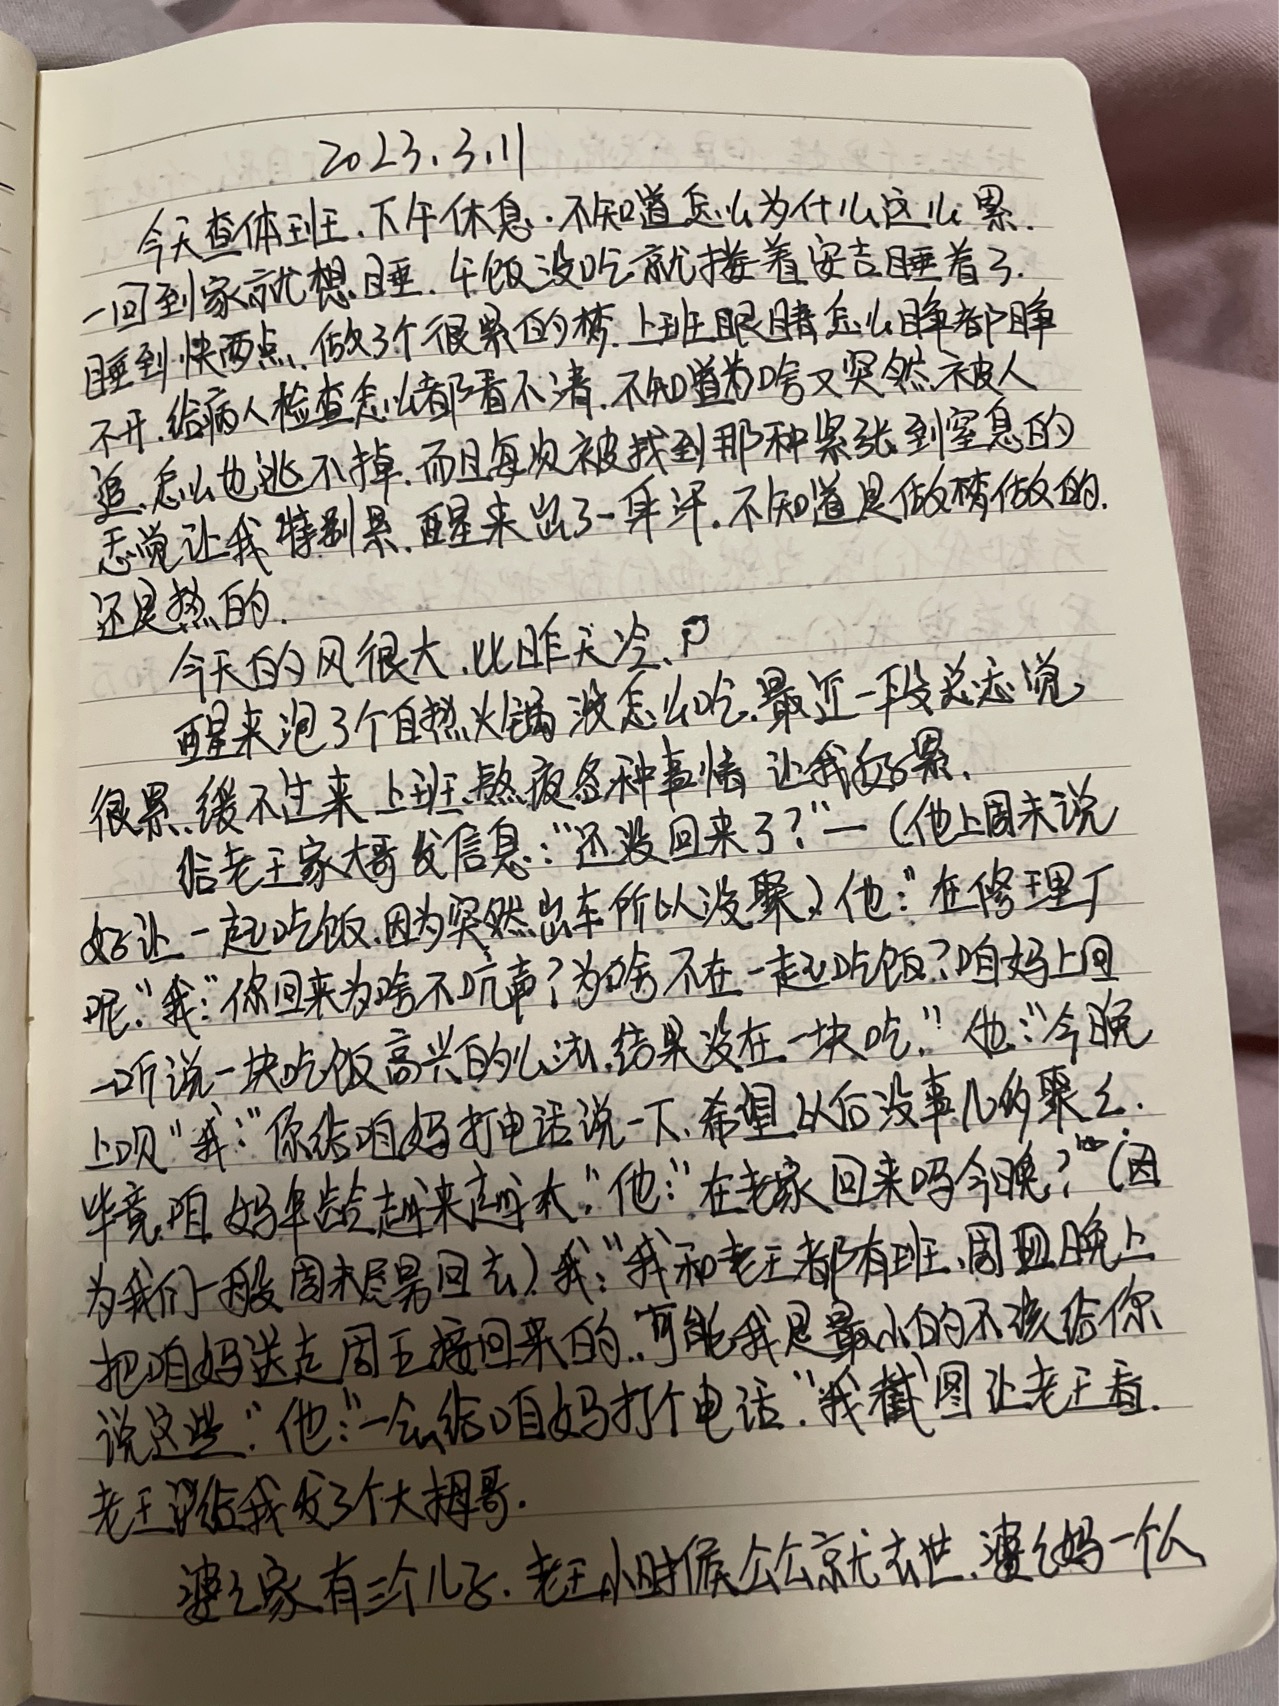 2023.3.11
今天查体班.下午休息.不知道怎么为什么这么累.
一回到家就想睡.午饭没吃就搂着安吉睡着了.
睡到快两点.做了个很累的梦.上班眼睛怎么睁都睁
不开.给病人检查怎么都看不清.不知道为啥又突然被人
追.怎么也逃不掉.而且每次被找到那种紧张到窒息的
感觉让我特别累.醒来出了一身汗.不知道是做梦做的.
还是热的.
今天的风很大.比昨天冷.
醒来泡了个自热火锅没怎么吃.最近一段总感觉
很累.缓不过来 上班.熬夜各种事情 让我好累.
给老王家大哥发信息:“还没回来了?”—(他上周末说
好让一起吃饭.因为突然出车所以没聚)他:“在修理厂
呢.”我:“你回来为啥不吭声?为啥不在一起吃饭?咱妈上回
一听说一块吃饭高兴的么法.结果没在一块吃.” 他:“今晚
上呗”我:“你给咱妈打电话说一下.希望以后没事儿多聚么.
毕竟咱妈年龄越来越大.”他:“在老家回来吗今晚?”(因
为我们一般周末尽量回去)我:“我和老王都有班.周四晚上
把咱妈送走周五接回来的..可能我是最小的不该给你
说这些.”他:“一会给咱妈打个电话.”我截图让老王看.
老王给我发了个大拇哥.
婆婆家有三个儿子.老王小时候公公就去世.婆婆妈一个人